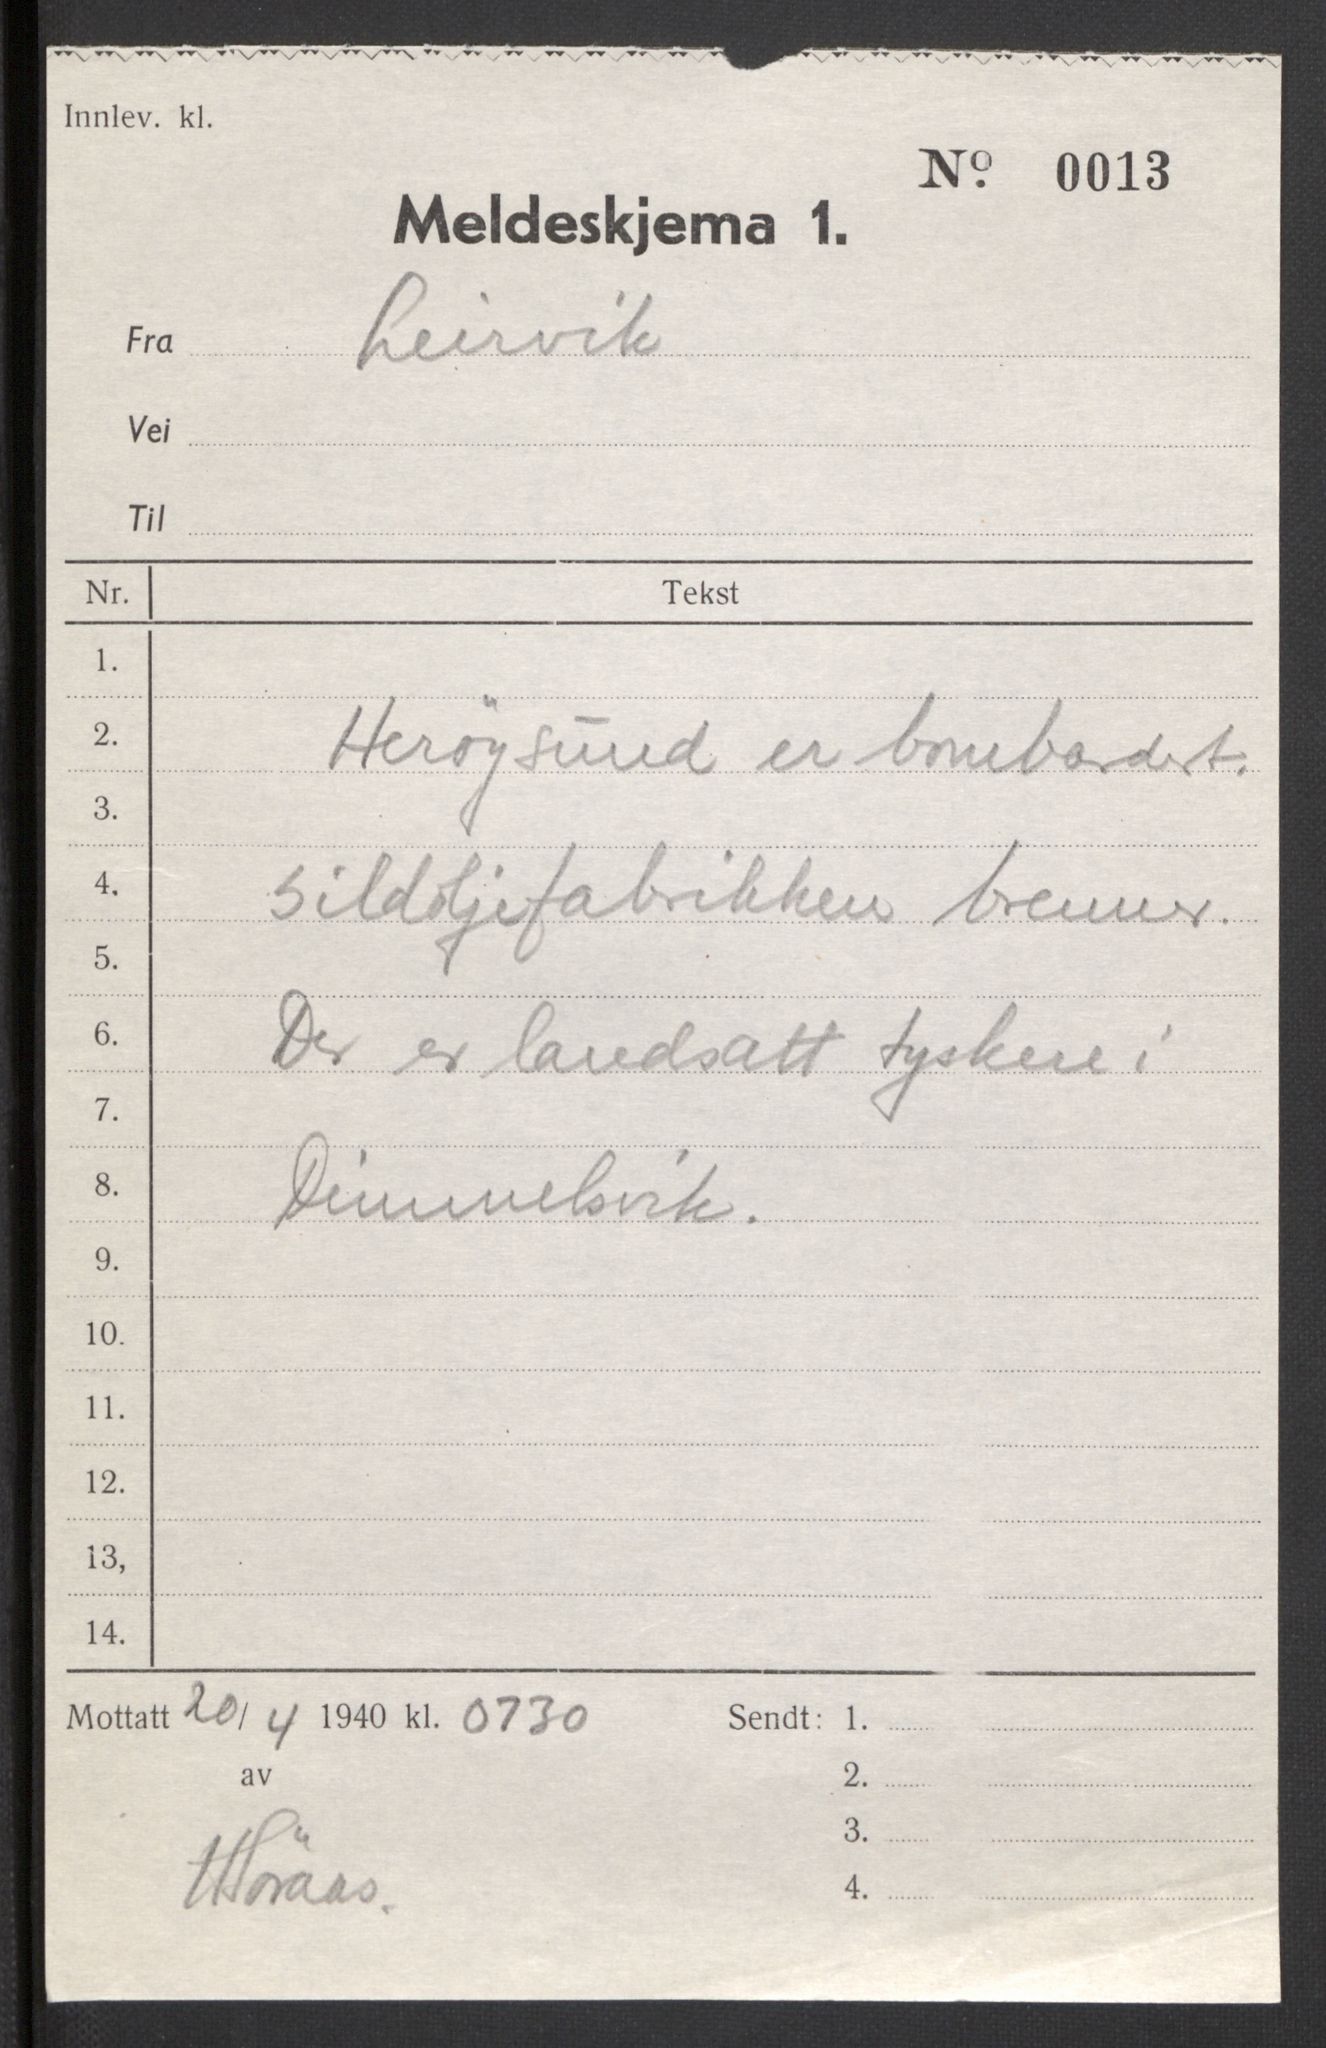 Innlev. kl.
Nº. 0013
Meldeskjema 1.
Fra Leirvik
Vei
Til
Nr. Tekst
1.
2. Heröysund er bombardert.
3.
4. Sildoljefabrikken brenner.
5.
6. Der er landsatt tyskere i
7.
8. Dimmelsvik.
9.
10.
11.
12.
13,
14.
Mottatt 20/4 1940 kl. 0730 Sendt: 1.
av 2.
3.
4.